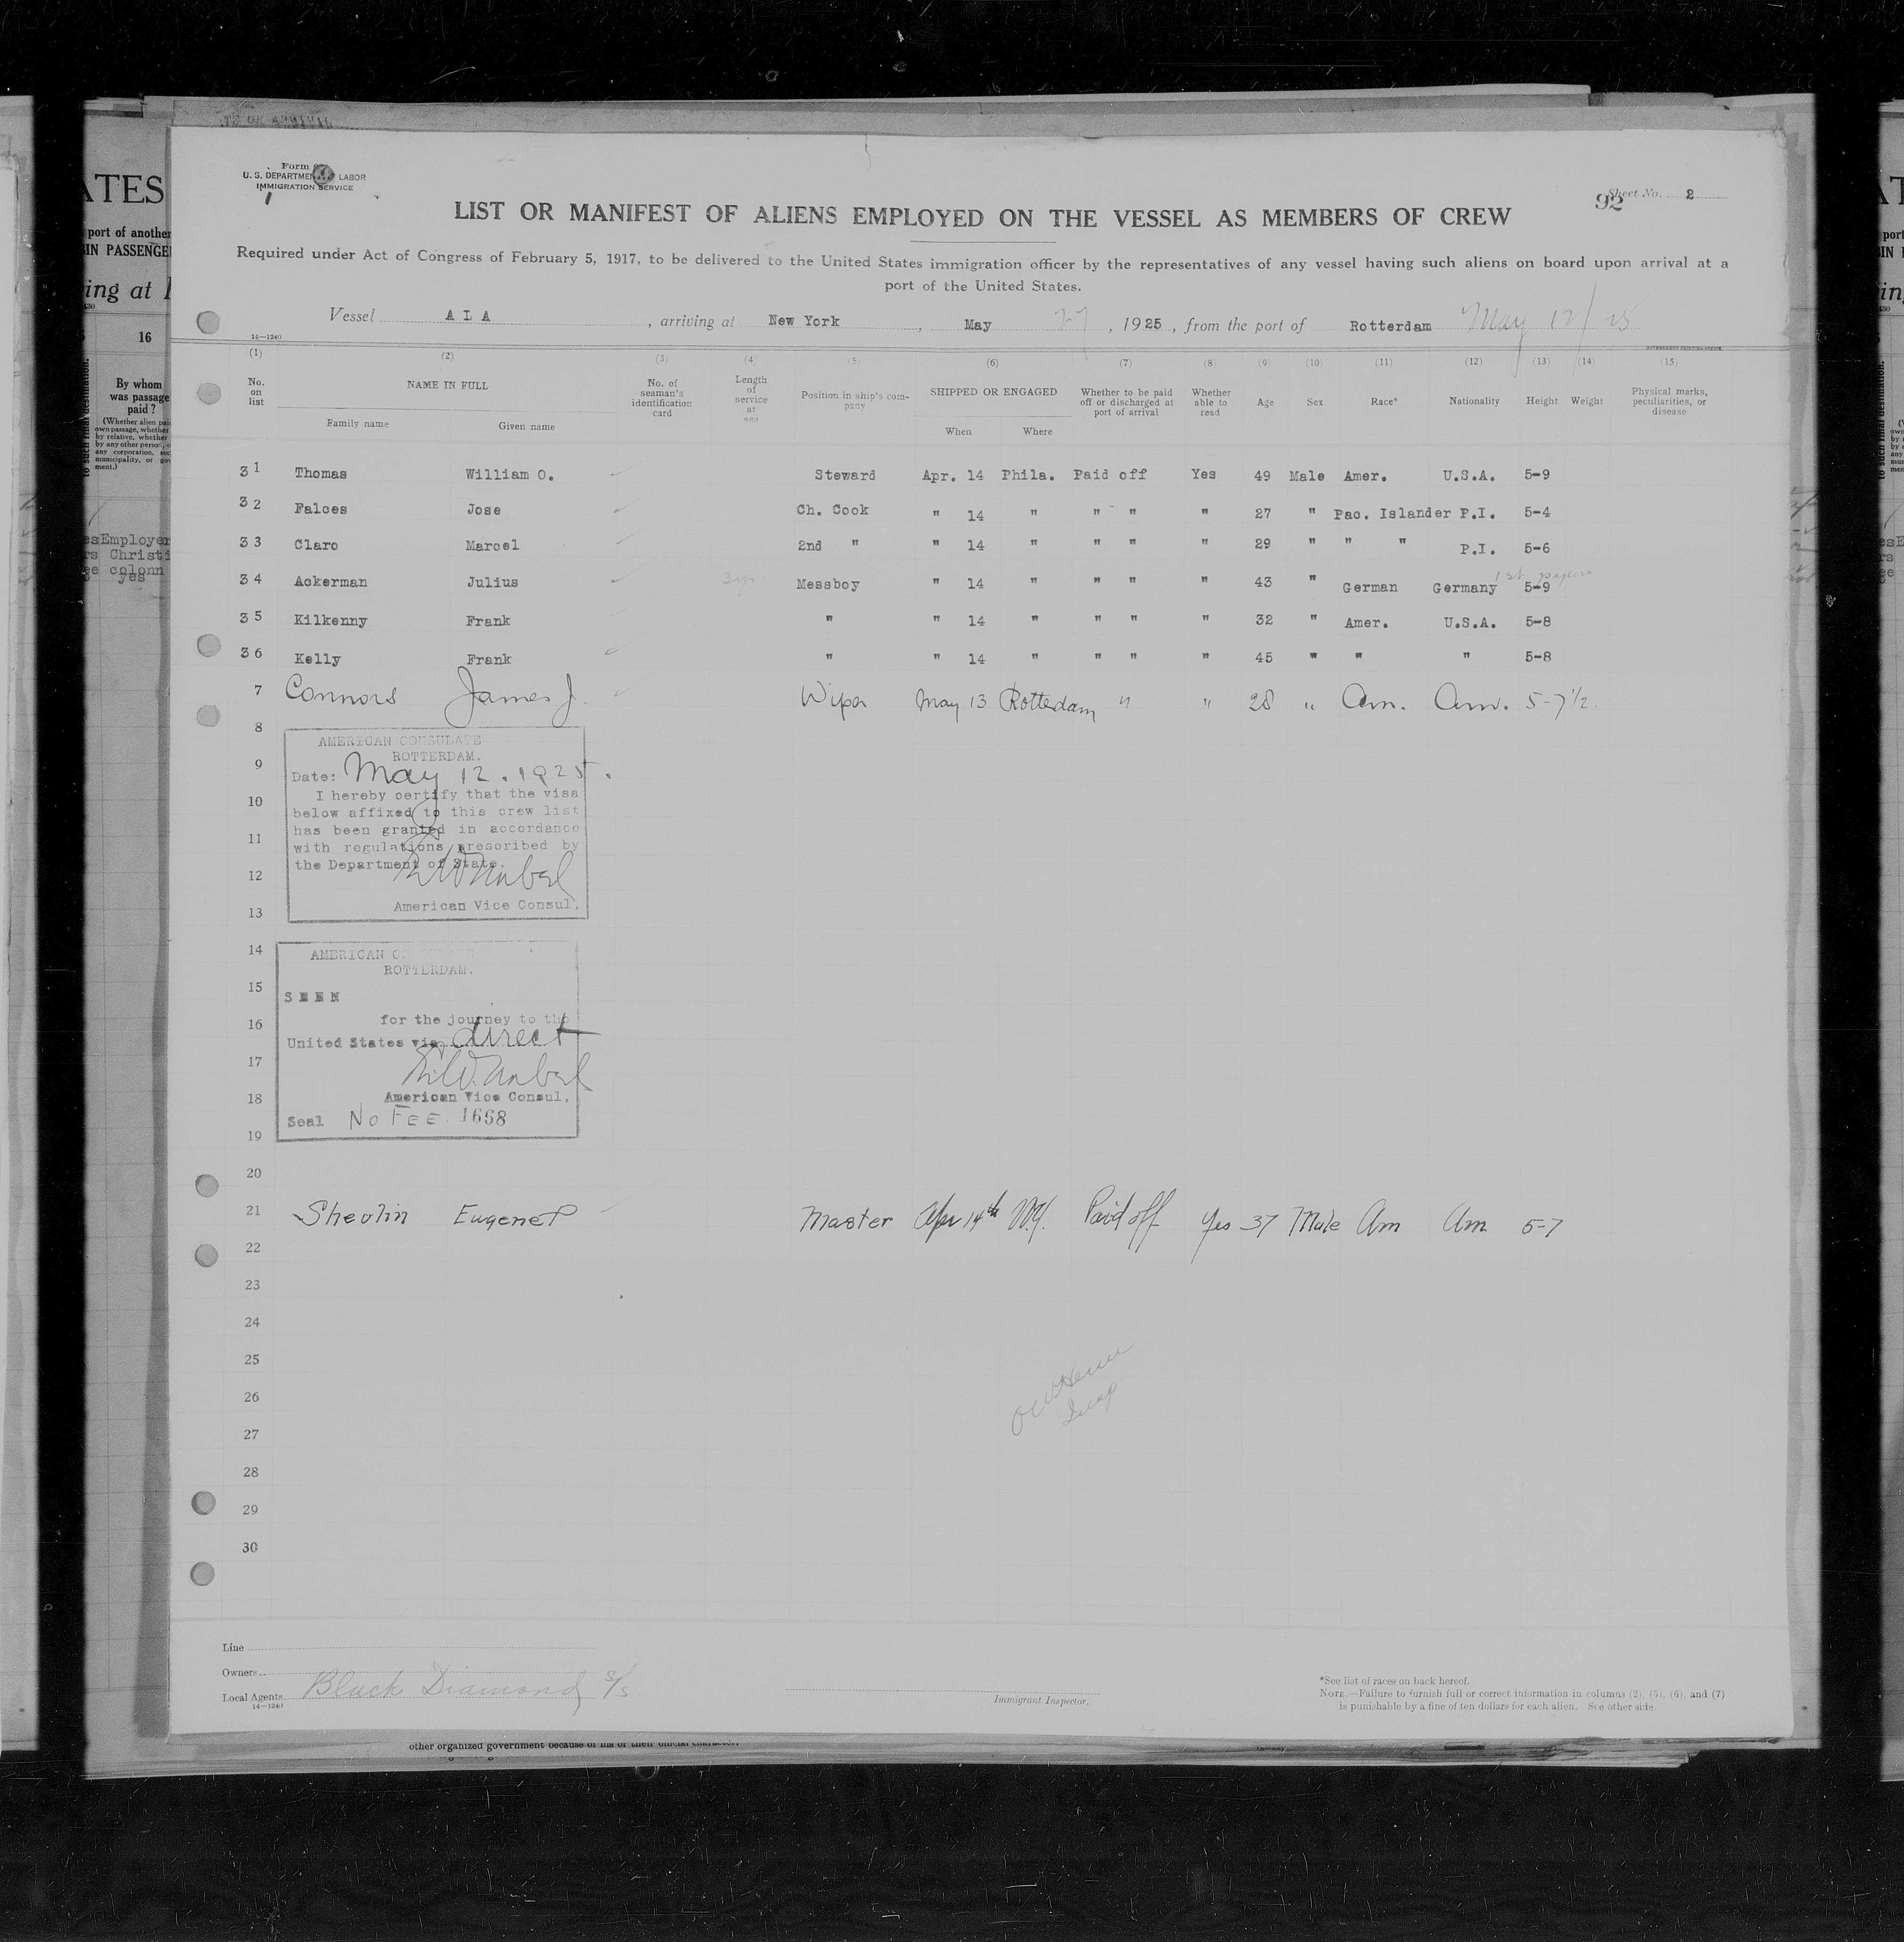 Form
U. S. DEPARTMENT OF LABOR
IMMIGRATION SERVICE
Sheet No. 2
92
LIST OR MANIFEST OF ALIENS EMPLOYED ON THE VESSEL AS MEMBERS OF CREW
Required under Act of Congress of February 5, 1917, to be delivered to the United States immigration officer by the representatives of any vessel having such aliens on board upon arrival at a
port of the United States.
Vessel ALA, arriving at New York, May 27, 1925, from the port of Rotterdam May 12/25
14—1240
(1) (2) (3) (4) (5) (6) (7) (8) (9) (10) (11) (12) (13) (14) (15)
No. on list NAME IN FULL No. of seaman's identification card Length of service at sea Position in ship's company SHIPPED OR ENGAGED Whether to be paid off or discharged at port of arrival Whether able to read Age Sex Race* Nationality Height Weight Physical marks, peculiarities, or disease
Family name Given name When Where
31 Thomas William O. Steward Apr. 14 Phila. Paid off Yes 49 Male Amer. U.S.A. 5-9
32 Falces Jose Ch. Cook " 14 " " " " 27 " Pac. Islander P.I. 5-4
33 Claro Marcel 2nd " " 14 " " " " 29 " " " P.I. 5-6
34 Ackerman Julius Messboy " 14 " " " " 43 " German Germany 1st papers 5-9
35 Kilkenny Frank " " 14 " " " " 32 " Amer. U.S.A. 5-8
36 Kelly Frank " " 14 " " " " 45 " " " 5-8
7 Connors James J. Wiper May 13 Rotterdam " " 28 " Am. Am. 5-7 1/2
8
AMERICAN CONSULATE
ROTTERDAM.
9
Date: May 12. 1925.
10
I hereby certify that the visa
below affixed to this crew list
11
has been granted in accordance
with regulations prescribed by
the Department of State.
12
13
American Vice Consul,
14
AMERICAN CONSULATE
ROTTERDAM.
15
SEEN
16
for the journey to the
United States via direct
17
18
American Vice Consul,
Seal No FEE. 1668
19
20
21 Shevlin Eugene P Master Apr 14th N.Y. Paid off Yes 37 Male Am Am 5-7
22
23
24
25
26
27
28
29
30
Line
Owners
Local Agents Black Diamond S/S
14—1240
Immigrant Inspector.
*See list of races on back hereof.
NOTE.—Failure to furnish full or correct information in columns (2), (5), (6), and (7)
is punishable by a fine of ten dollars for each alien. See other side.
other organized government because of his or their official character.
ATES
port of another
BIN PASSENGE
ing at
16
By whom
was passage
paid?